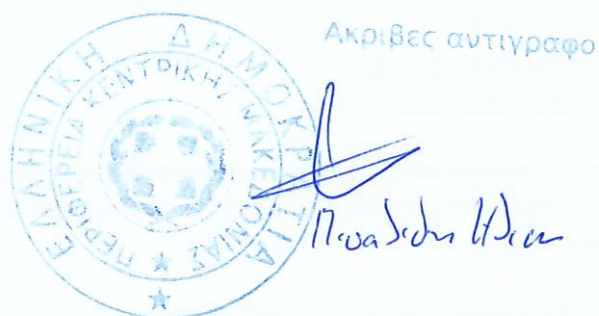 Ακριβες αντιγραφο
ΕΛΛΗΝΙΚΗ ΔΗΜΟΚΡΑΤΙΑ
ΠΕΡΙΦΕΡΕΙΑ ΚΕΝΤΡΙΚΗΣ ΜΑΚΕΔΟΝΙΑΣ